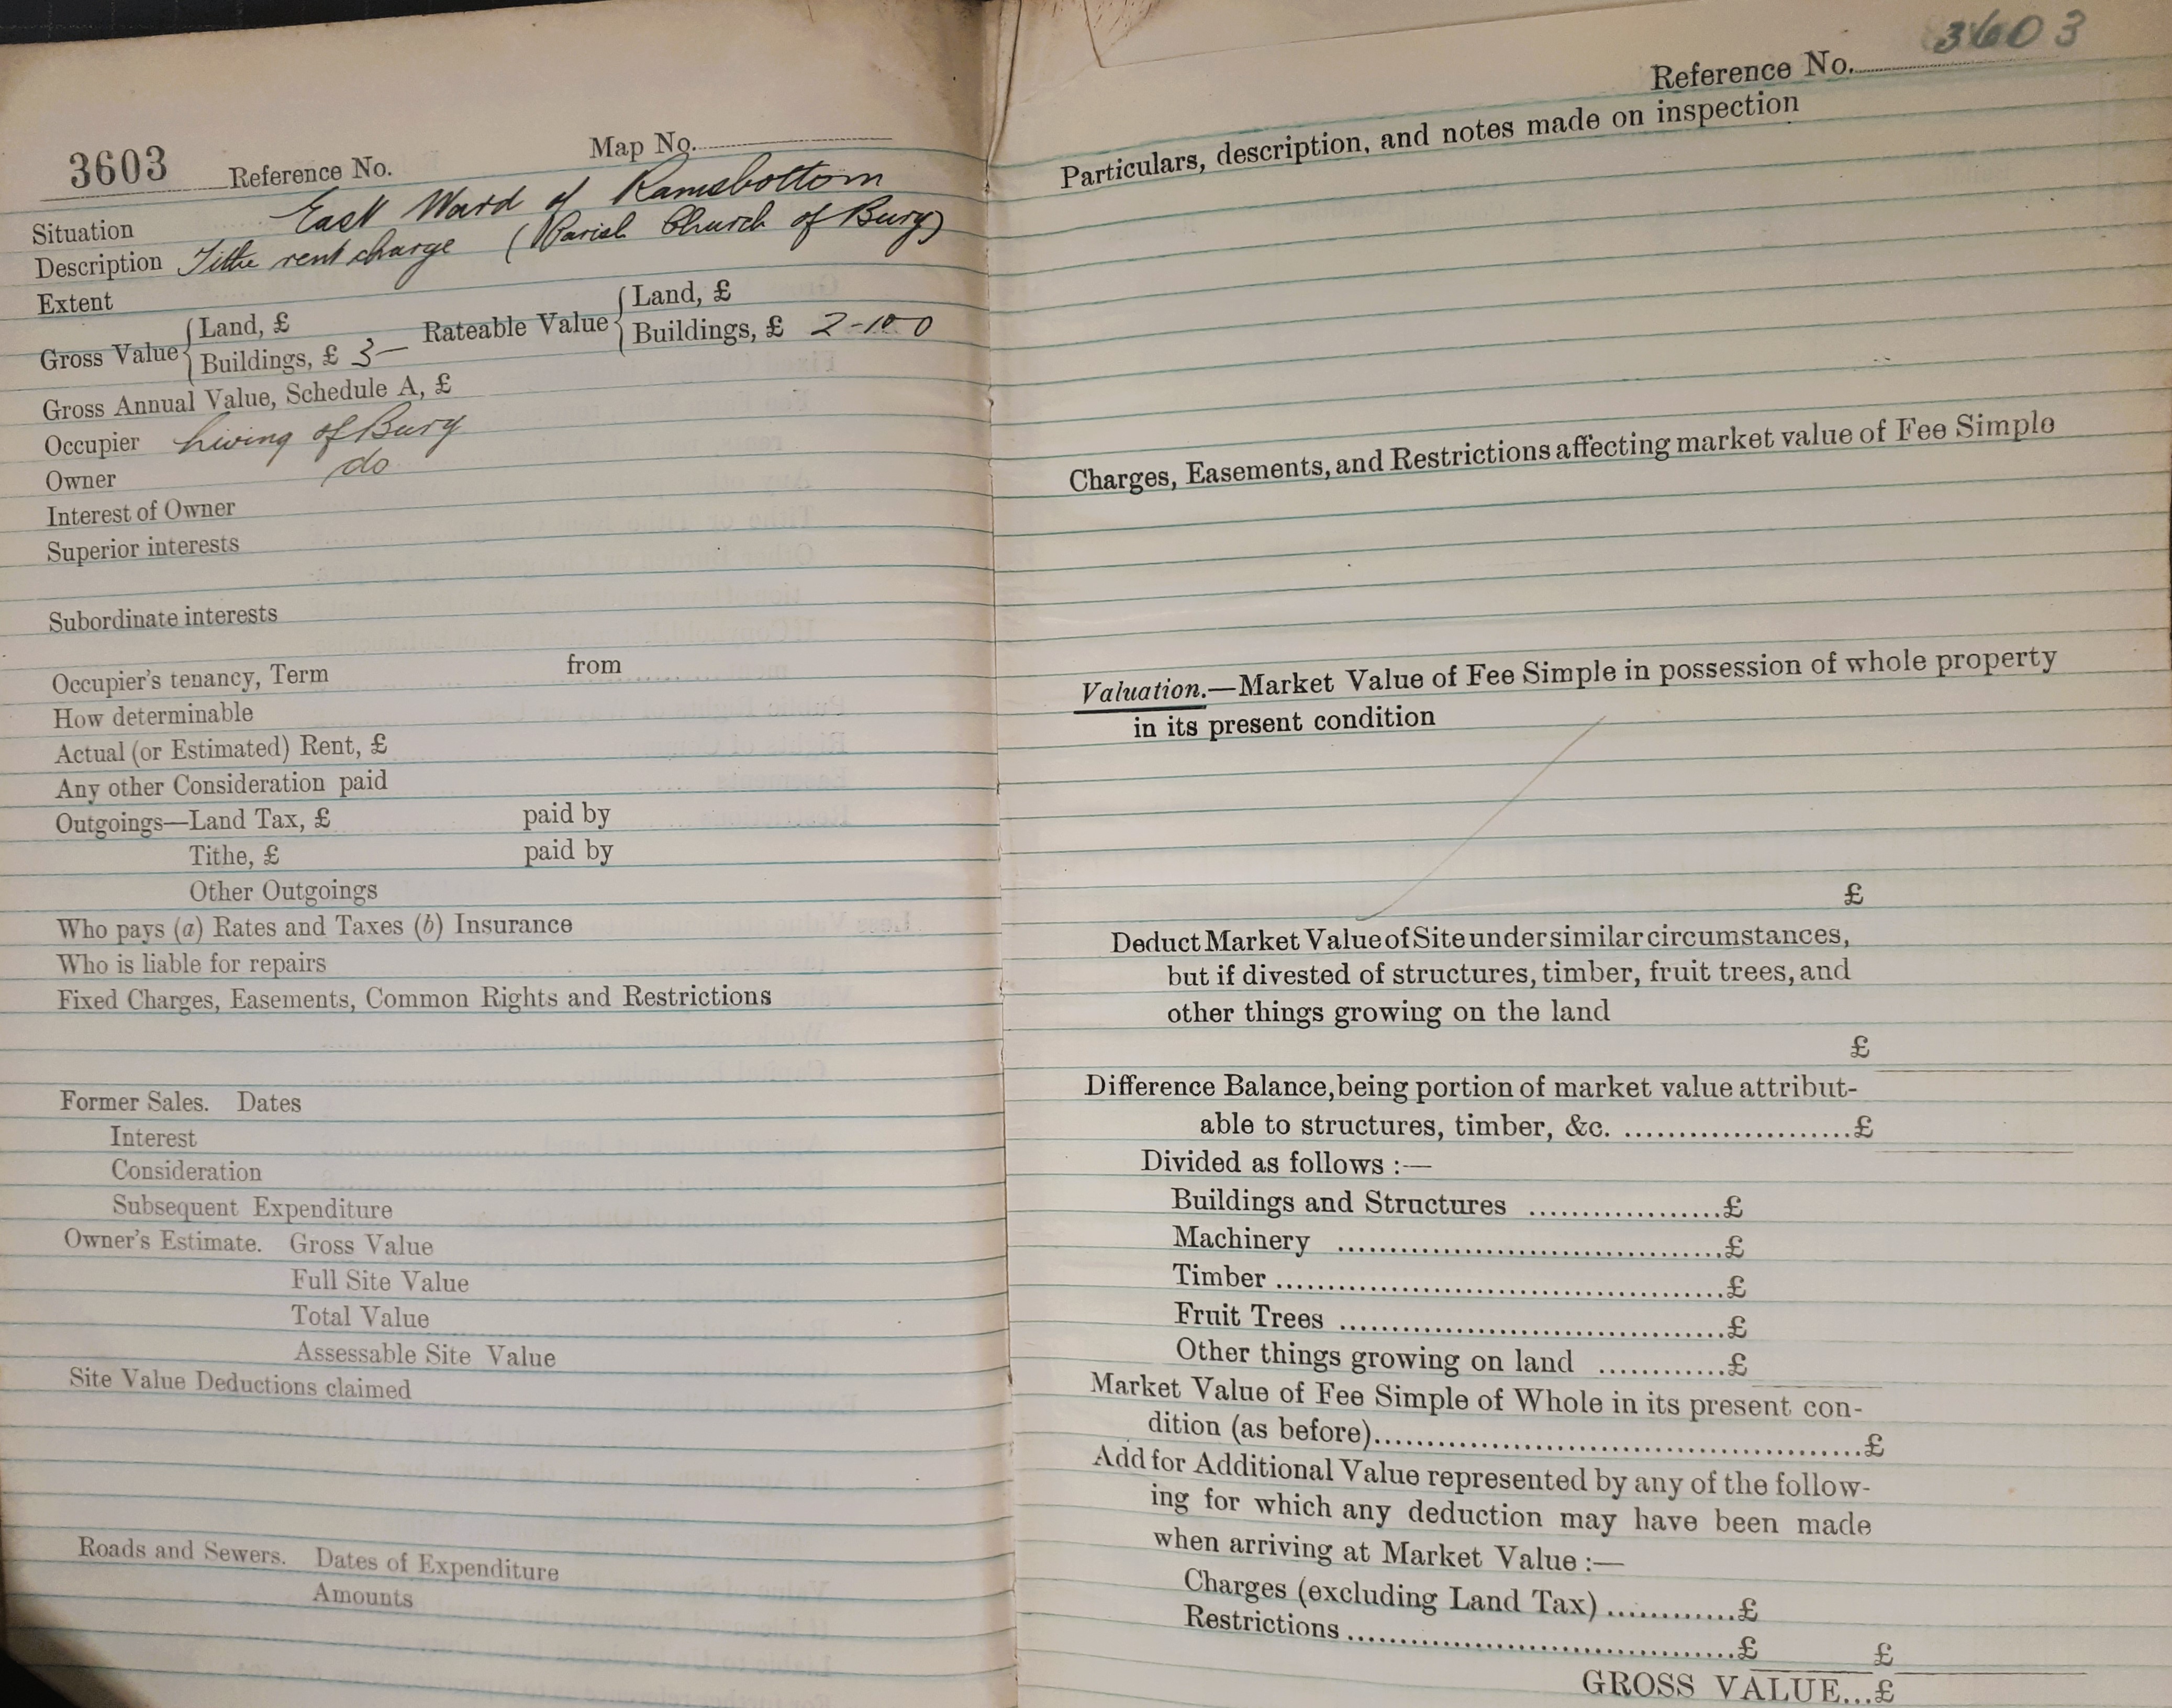 3603 Reference No. Map No.
Situation East Ward of Ramsbottom
Description Tithe rent charge (Parish Church of Bury)
Extent
Gross Value { Land, £
Buildings, £ 3— Rateable Value { Land, £
Buildings, £ 2-10-0
Gross Annual Value, Schedule A, £
Occupier Living of Bury
Owner do
Interest of Owner
Superior interests
Subordinate interests
Occupier's tenancy, Term from
How determinable
Actual (or Estimated) Rent, £
Any other Consideration paid
Outgoings—Land Tax, £ paid by
Tithe, £ paid by
Other Outgoings
Who pays (a) Rates and Taxes (b) Insurance
Who is liable for repairs
Fixed Charges, Easements, Common Rights and Restrictions
Former Sales. Dates
Interest
Consideration
Subsequent Expenditure
Owner's Estimate. Gross Value
Full Site Value
Total Value
Assessable Site Value
Site Value Deductions claimed
Roads and Sewers. Dates of Expenditure
Amounts
Reference No. 3603
Particulars, description, and notes made on inspection
Charges, Easements, and Restrictions affecting market value of Fee Simple
Valuation.—Market Value of Fee Simple in possession of whole property
in its present condition
£
Deduct Market Value of Site under similar circumstances,
but if divested of structures, timber, fruit trees, and
other things growing on the land
£
Difference Balance, being portion of market value attribut-
able to structures, timber, &c. ......................£
Divided as follows :—
Buildings and Structures ...................£
Machinery .......................................£
Timber .............................................£
Fruit Trees .......................................£
Other things growing on land ............£
Market Value of Fee Simple of Whole in its present con-
dition (as before)................................................£
Add for Additional Value represented by any of the follow-
ing for which any deduction may have been made
when arriving at Market Value :—
Charges (excluding Land Tax) .............£
Restrictions .......................................£ £
GROSS VALUE...£